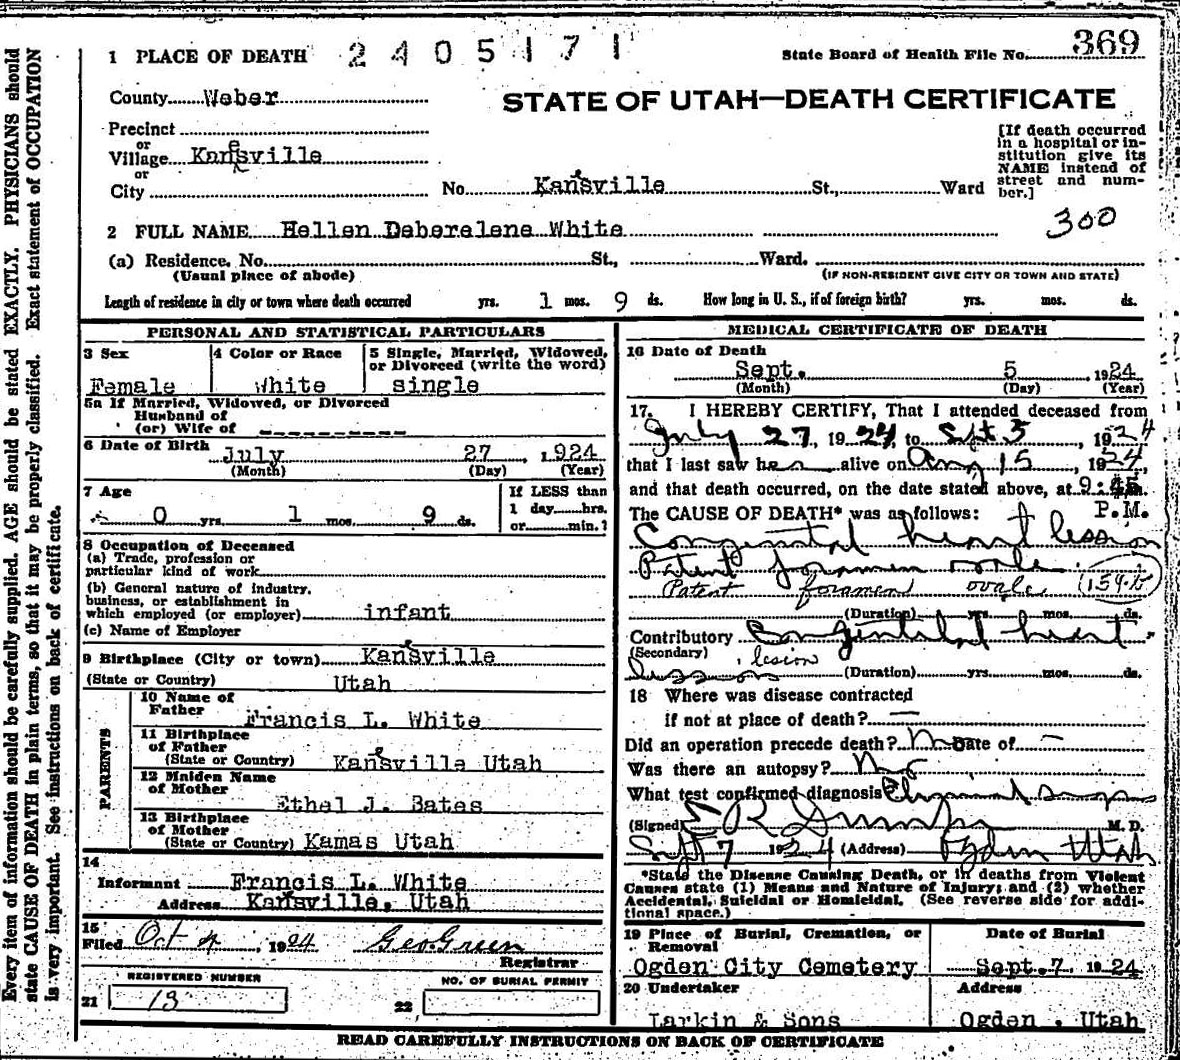 1 PLACE OF DEATH 2405171 State Board of Health File No. 369
County Weber STATE OF UTAH—DEATH CERTIFICATE
Precinct
or
Village Kanesville
or
City No. Kanesville St., Ward
[If death occurred in a hospital or in-
stitution give its
NAME instead of
street and num-
ber.]
300
2 FULL NAME Hellen Deborelene White
(a) Residence. No. St., Ward.
(Usual place of abode) (IF NON-RESIDENT GIVE CITY OR TOWN AND STATE)
Length of residence in city or town where death occurred yrs. 1 mos. 9 ds. How long in U. S., if of foreign birth? yrs. mos. ds.
PERSONAL AND STATISTICAL PARTICULARS
3 Sex
Female
4 Color or Race
White
5 Single, Married, Widowed,
or Divorced (write the word)
single
5a If Married, Widowed, or Divorced
Husband of
(or) Wife of
6 Date of Birth July 27 , 1924
(Month) (Day) (Year)
7 Age
0 yrs. 1 mos. 9 ds.
If LESS than
1 day, hrs.
or min.?
8 Occupation of Deceased
(a) Trade, profession or
particular kind of work
(b) General nature of industry,
business, or establishment in
which employed (or employer) infant
(c) Name of Employer
9 Birthplace (City or town) Kanesville
(State or Country) Utah
PARENTS
10 Name of
Father Francis L. White
11 Birthplace
of Father
(State or Country) Kanesville Utah
12 Maiden Name
of Mother Ethel J. Bates
13 Birthplace
of Mother
(State or Country) Kamas Utah
14
Informant Francis L. White
Address Kanesville, Utah
15
Filed Oct 4, 1924 Geo. Green
Registrar
REGISTERED NUMBER
21 13
NO. OF BURIAL PERMIT
22
MEDICAL CERTIFICATE OF DEATH
16 Date of Death
Sept. 5 1924
(Month) (Day) (Year)
17. I HEREBY CERTIFY, That I attended deceased from
July 27, 1924, to Sept 5, 1924
that I last saw her alive on Aug 15, 1924,
and that death occurred, on the date stated above, at 9:45 m.
The CAUSE OF DEATH* was as follows: P.M.
Congenital heart lession
Patent foramen ovale
Patent foramen ovale (159.b)
(Duration) yrs. mos. ds.
Contributory Congenital heart
(Secondary) lesion
(Duration) yrs. mos. ds.
18 Where was disease contracted
if not at place of death? —
Did an operation precede death? No Date of —
Was there an autopsy? No
What test confirmed diagnosis?
(Signed) M. D.
Sept 7 1924 (Address) Ogden Utah
*State the Disease Causing Death, or in deaths from Violent
Causes state (1) Means and Nature of Injury; and (2) whether
Accidental, Suicidal or Homicidal. (See reverse side for addi-
tional space.)
19 Place of Burial, Cremation, or
Removal
Ogden City Cemetery
Date of Burial
Sept. 7, 1924
20 Undertaker
Larkin & Sons
Address
Ogden, Utah
READ CAREFULLY INSTRUCTIONS ON BACK OF CERTIFICATE
Every item of information should be carefully supplied. AGE should be stated EXACTLY. PHYSICIANS should
state CAUSE OF DEATH in plain terms, so that it may be properly classified. Exact statement of OCCUPATION
is very important. See instructions on back of certificate.